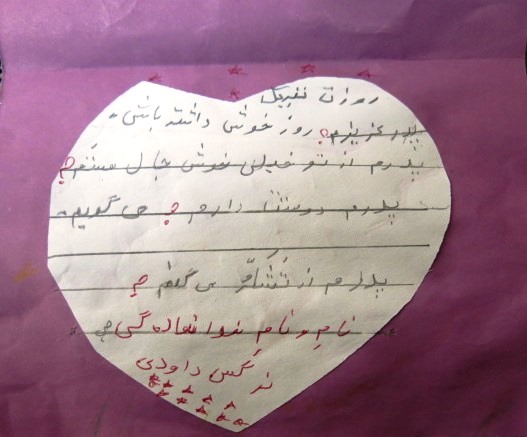 روزت تفبریک
پدر عزیزم؟ روز خوشی داشته باشی.
پدرم از تو خیلی خوش حال میشم؟
پدرم دوستت دارم؟ می گویم.
پدرم از تشکر می گنم؟
نام و نام خوانواده گی؟
نرگس داودی